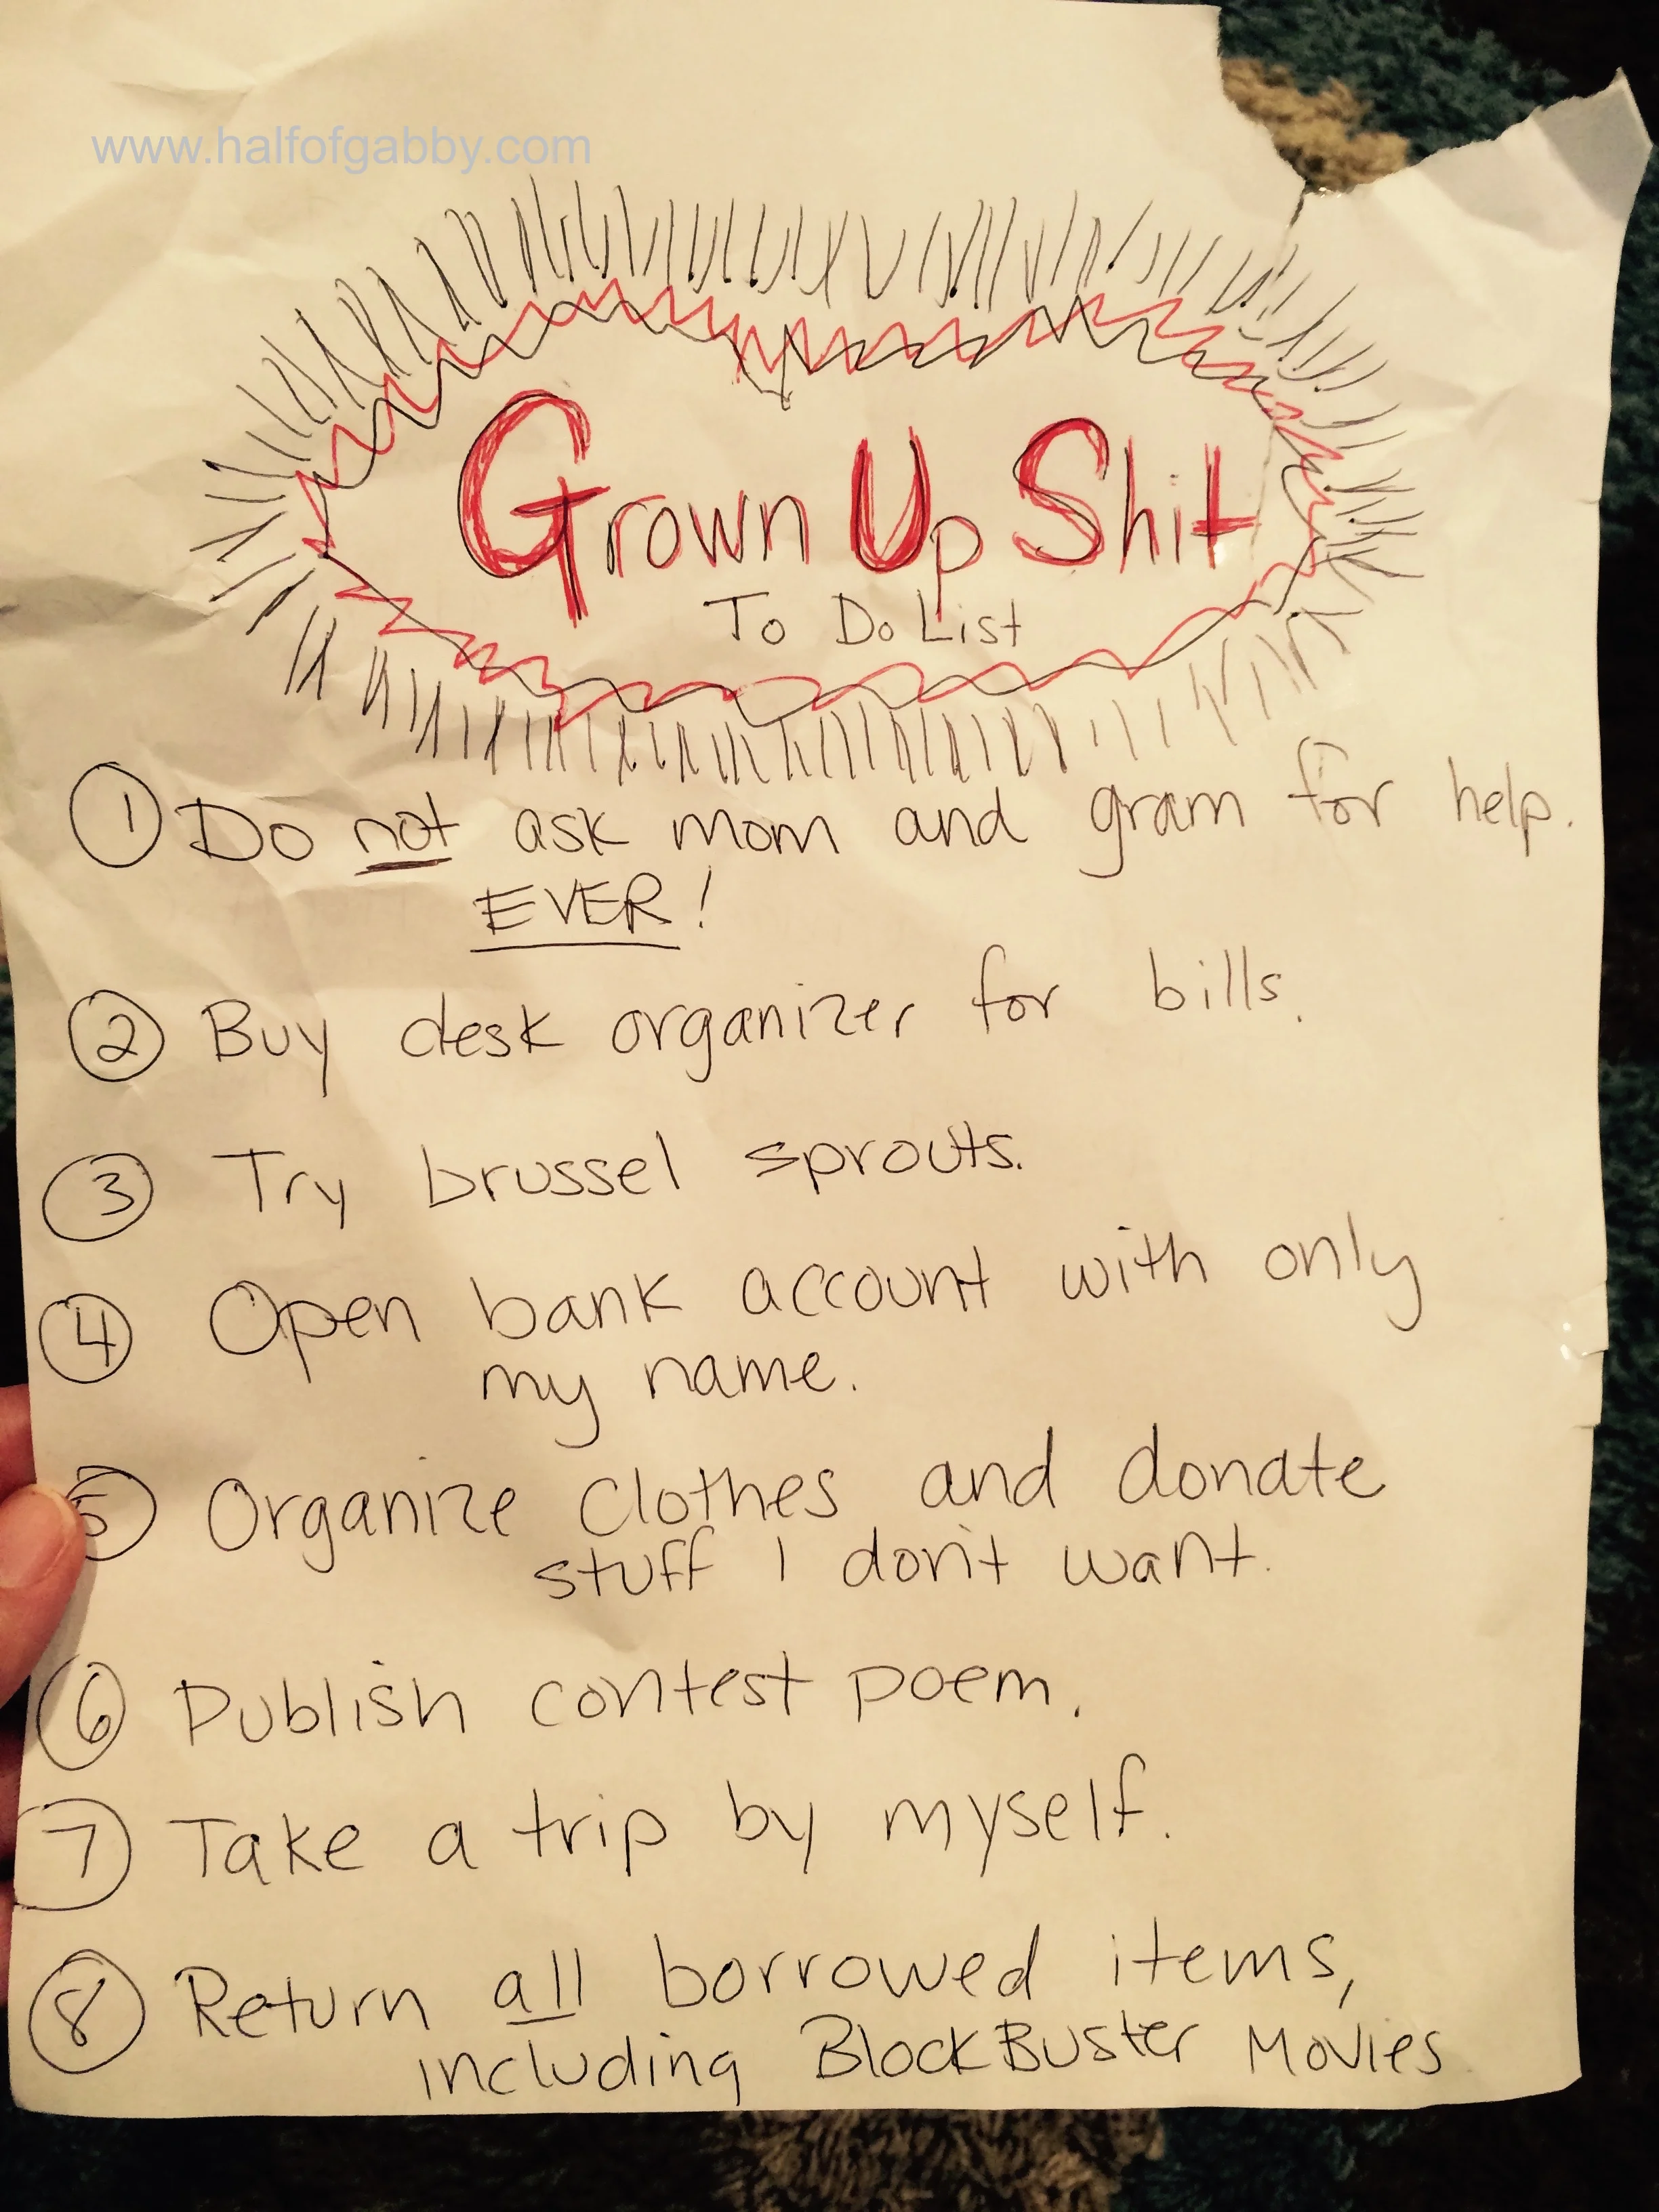 www.halfofgabby.com
Grown Up Shit
To Do List
1 Do not ask mom and gram for help.
EVER!
2 Buy desk organizer for bills.
3 Try brussel sprouts.
4 Open bank account with only
my name.
5 Organize clothes and donate
stuff I don't want.
6 Publish contest poem.
7 Take a trip by myself.
8 Return all borrowed items,
including BlockBuster Movies